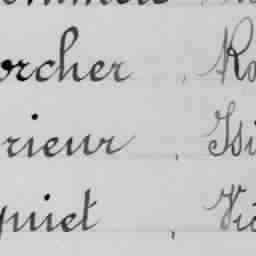 orcher . Ro
rieur . Isi
quiet . Vic